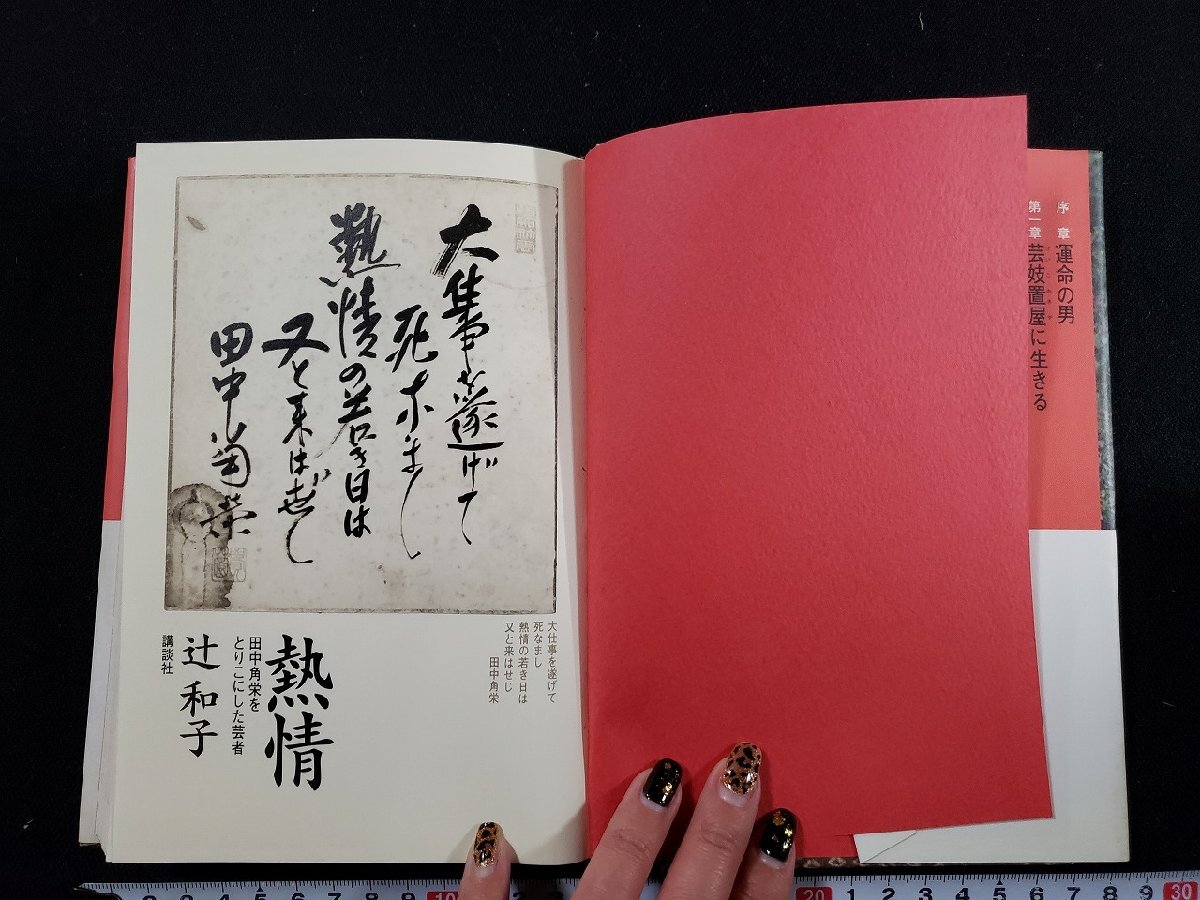 序章 運命の男
第一章 芸妓置屋に生きる
大仕事を遂げて
死なまし
熱情の若き日は
又と来はせじ
田中角栄
大仕事を遂げて
死なまし
熱情の若き日は
又と来はせじ
田中角栄
熱情
田中角栄を
とりこにした芸者
辻和子
講談社
1 2 3 4 5 6 7 8 9 10
20 1 2 3 4 5 6 7 8 9 30